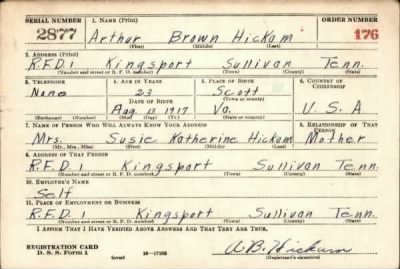 SERIAL NUMBER 1. NAME (Print) ORDER NUMBER
2877 Arthur Brown Hickam 176
(First) (Middle) (Last)
2. ADDRESS (Print)
R.F.D. 1 Kingsport Sullivan Tenn.
(Number and street or R. F. D. number) (Town) (County) (State)
3. TELEPHONE 4. AGE IN YEARS 5. PLACE OF BIRTH 6. COUNTRY OF CITIZENSHIP
None 23 Scott
DATE OF BIRTH (Town or county)
Aug. 1917 Va. U.S.A
(Exchange) (Number) (Mo.) (Day) (Yr.) (State or country)
7. NAME OF PERSON WHO WILL ALWAYS KNOW YOUR ADDRESS 8. RELATIONSHIP OF THAT PERSON
Mrs. Susie Katherine Hickam Mother
(Mr., Mrs., Miss) (First) (Middle) (Last)
9. ADDRESS OF THAT PERSON
R.F.D. 1 Kingsport Sullivan Tenn.
(Number and street or R. F. D. number) (Town) (County) (State)
10. EMPLOYER'S NAME
Self
11. PLACE OF EMPLOYMENT OR BUSINESS
R.F.D. 1 Kingsport Sullivan Tenn.
(Number and street or R. F. D. number) (Town) (County) (State)
I AFFIRM THAT I HAVE VERIFIED ABOVE ANSWERS AND THAT THEY ARE TRUE.
REGISTRATION CARD
D. S. S. Form 1 (over) A. B. Hickam
(Registrant's signature)